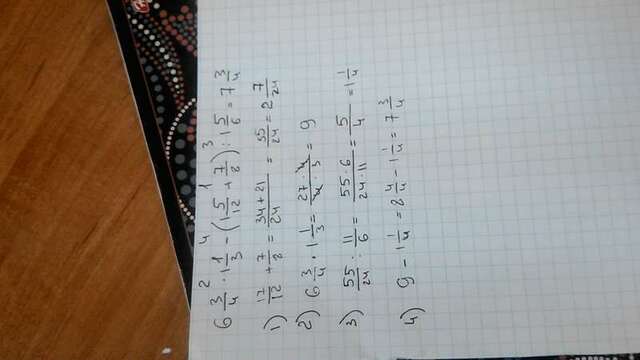 2 4 1 3
6 3/4 · 1 1/3 - (1 5/12 + 7/8) : 1 5/6 = 7 3/4
1) 17/12 + 7/8 = 34+21/24 = 55/24 = 2 7/24
2) 6 3/4 · 1 1/3 = 27·4/4·3 = 9
3) 55/24 : 11/6 = 55·6/24·11 = 5/4 = 1 1/4
4) 9 - 1 1/4 = 8 4/4 - 1 1/4 = 7 3/4